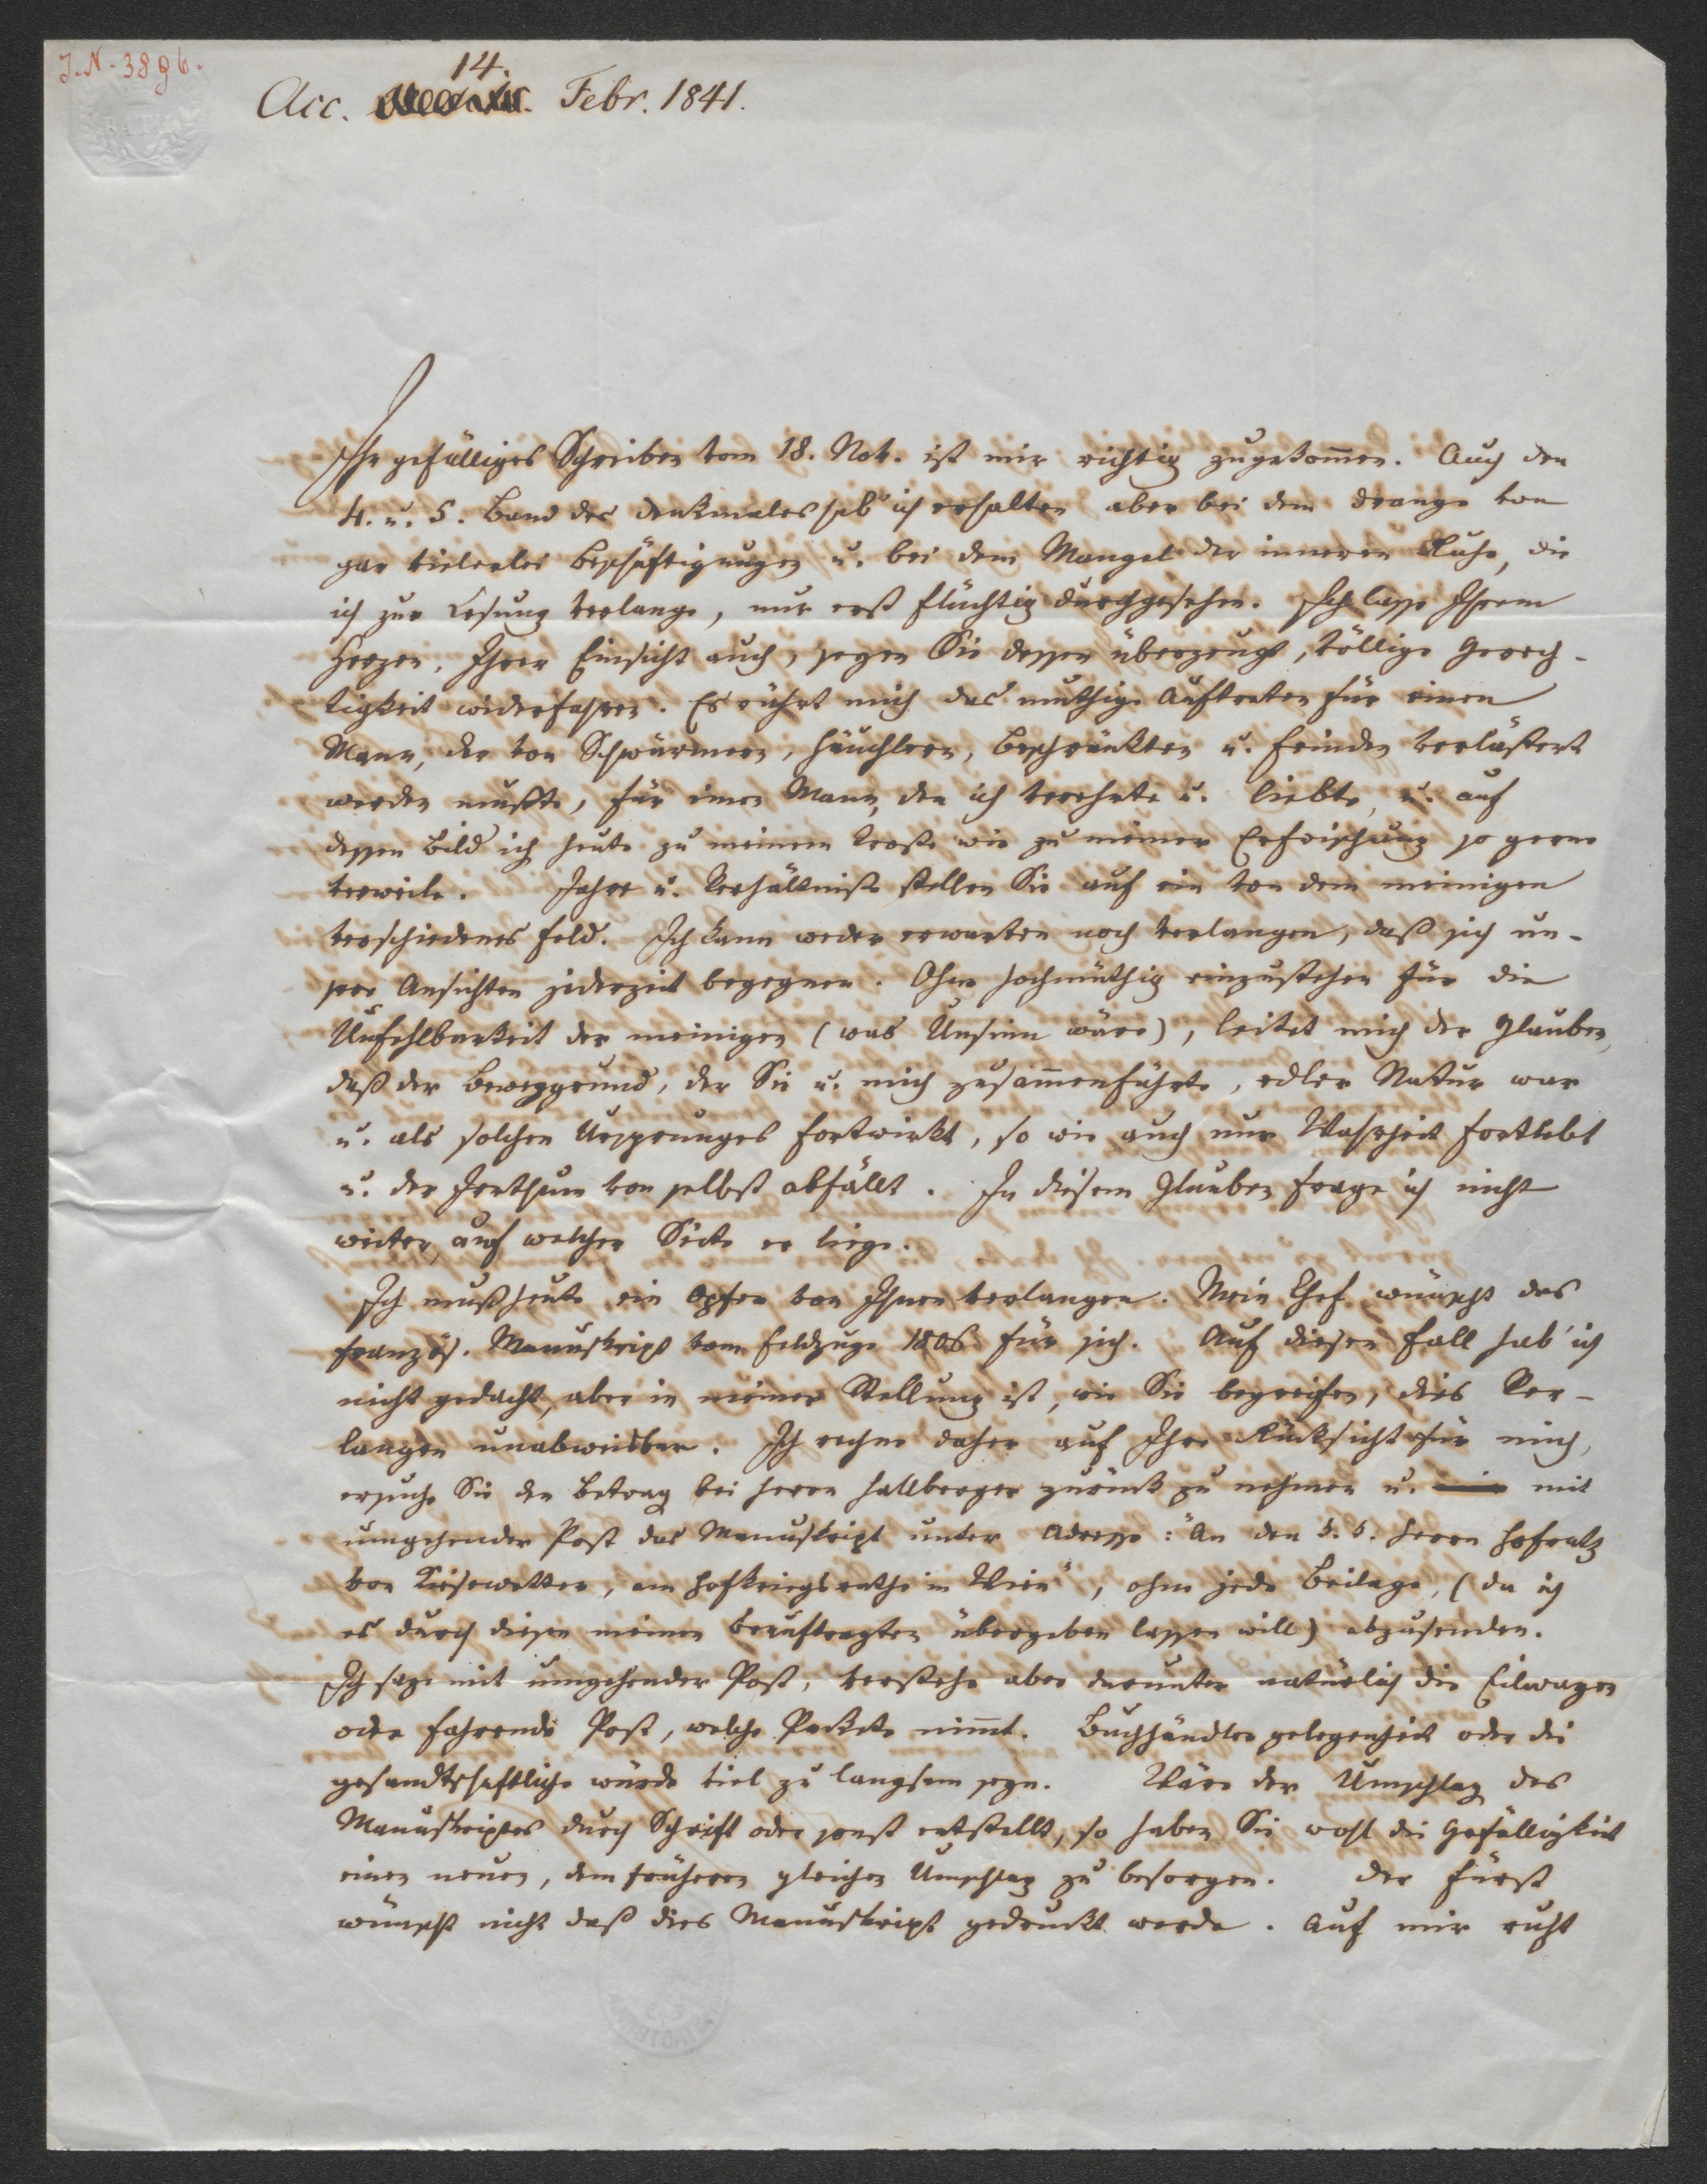 J.N. 3896.
14.
Acc. Febr. 1841.
BATH
Ihr gefälliges Schreiben vom 18. Nov. ist mir richtig zugekom̄en. Auch den
4. u. 5. Band des Denkmales hab' ich erhalten aber bei dem Drange von
gar vielerlei Beschäftigungen u. bei dem Mangel der inneren Ruhe, die
ich zur Lesung verlange, nur erst flüchtig durchgesehen. Ich lasse Ihrem
Herzen, Ihrer Einsicht auch, seyen Sie dessen überzeugt, völlige Gerech-
tigkeit widerfahren. Es rührt mich das muthige Auftreten für einen
Mann, der von Schwärmern, Häuchlern, Beschränkten u. Feinden verlästert
werden mußte, für einen Mann, den ich verehrte u. liebte, u. auf
dessen Bild ich heute zu meinem Troste wie zu meiner Erfrischung so gerne
verweile. Jahre u. Verhältnisse stellen Sie auf ein von dem meinigen
verschiedenes Feld. Ich kann weder erwarten noch verlangen, daß sich un-
sere Ansichten jederzeit begegnen. Ohne hochmüthig einzustehen für die
Unfehlbarkeit der meinigen (was Unsinn wäre), leitet mich der Glauben,
daß der Beweggrund, der Sie u. mich zusam̄enführte, edler Natur war
u. als solchen Ursprunges fortwirkt, so wie auch nur Wahrheit fortlebt
u. der Irrthum von selbst abfällt. In diesem Glauben frage ich nicht
weiter, auf welcher Seite er liege.
Ich muß heute ein Opfer von Ihnen verlangen. Mein Chef wünscht das
französ. Manuskript vom Feldzuge 1806 für sich. Auf diesen Fall hab' ich
nicht gedacht, aber in meiner Stellung ist, wie Sie begreifen, dies Ver-
langen unabweisbar. Ich rechne daher auf Ihre Rücksicht für mich,
ersuche Sie den Betrag bei Herrn Hallberger zurück zu nehmen u. mit
umgehender Post das Manuskript unter Adresse: "An den k. k. Herrn Hofrath
von Kiesewetter, am Hofkriegsrathe in Wien", ohne jede Beilage, (da ich
es durch diesen meinen Beauftragten übergeben lassen will) abzusenden.
Ich sage mit umgehender Post, verstehe aber darunter natürlich die Eilwagen
oder fahrende Post, welche Packete nim̄t. Buchhändlergelegenheit oder die
gesandtschaftliche würde viel zu langsam seyn. Wäre der Umschlag des
Manuskriptes durch Schrift oder sonst entstellt, so haben Sie wohl die Gefälligkeit
einen neuen, dem früheren gleichen Umschlag zu besorgen. Der Fürst
wünscht nicht daß dies Manuskript gedruckt werde. Auf mir ruht